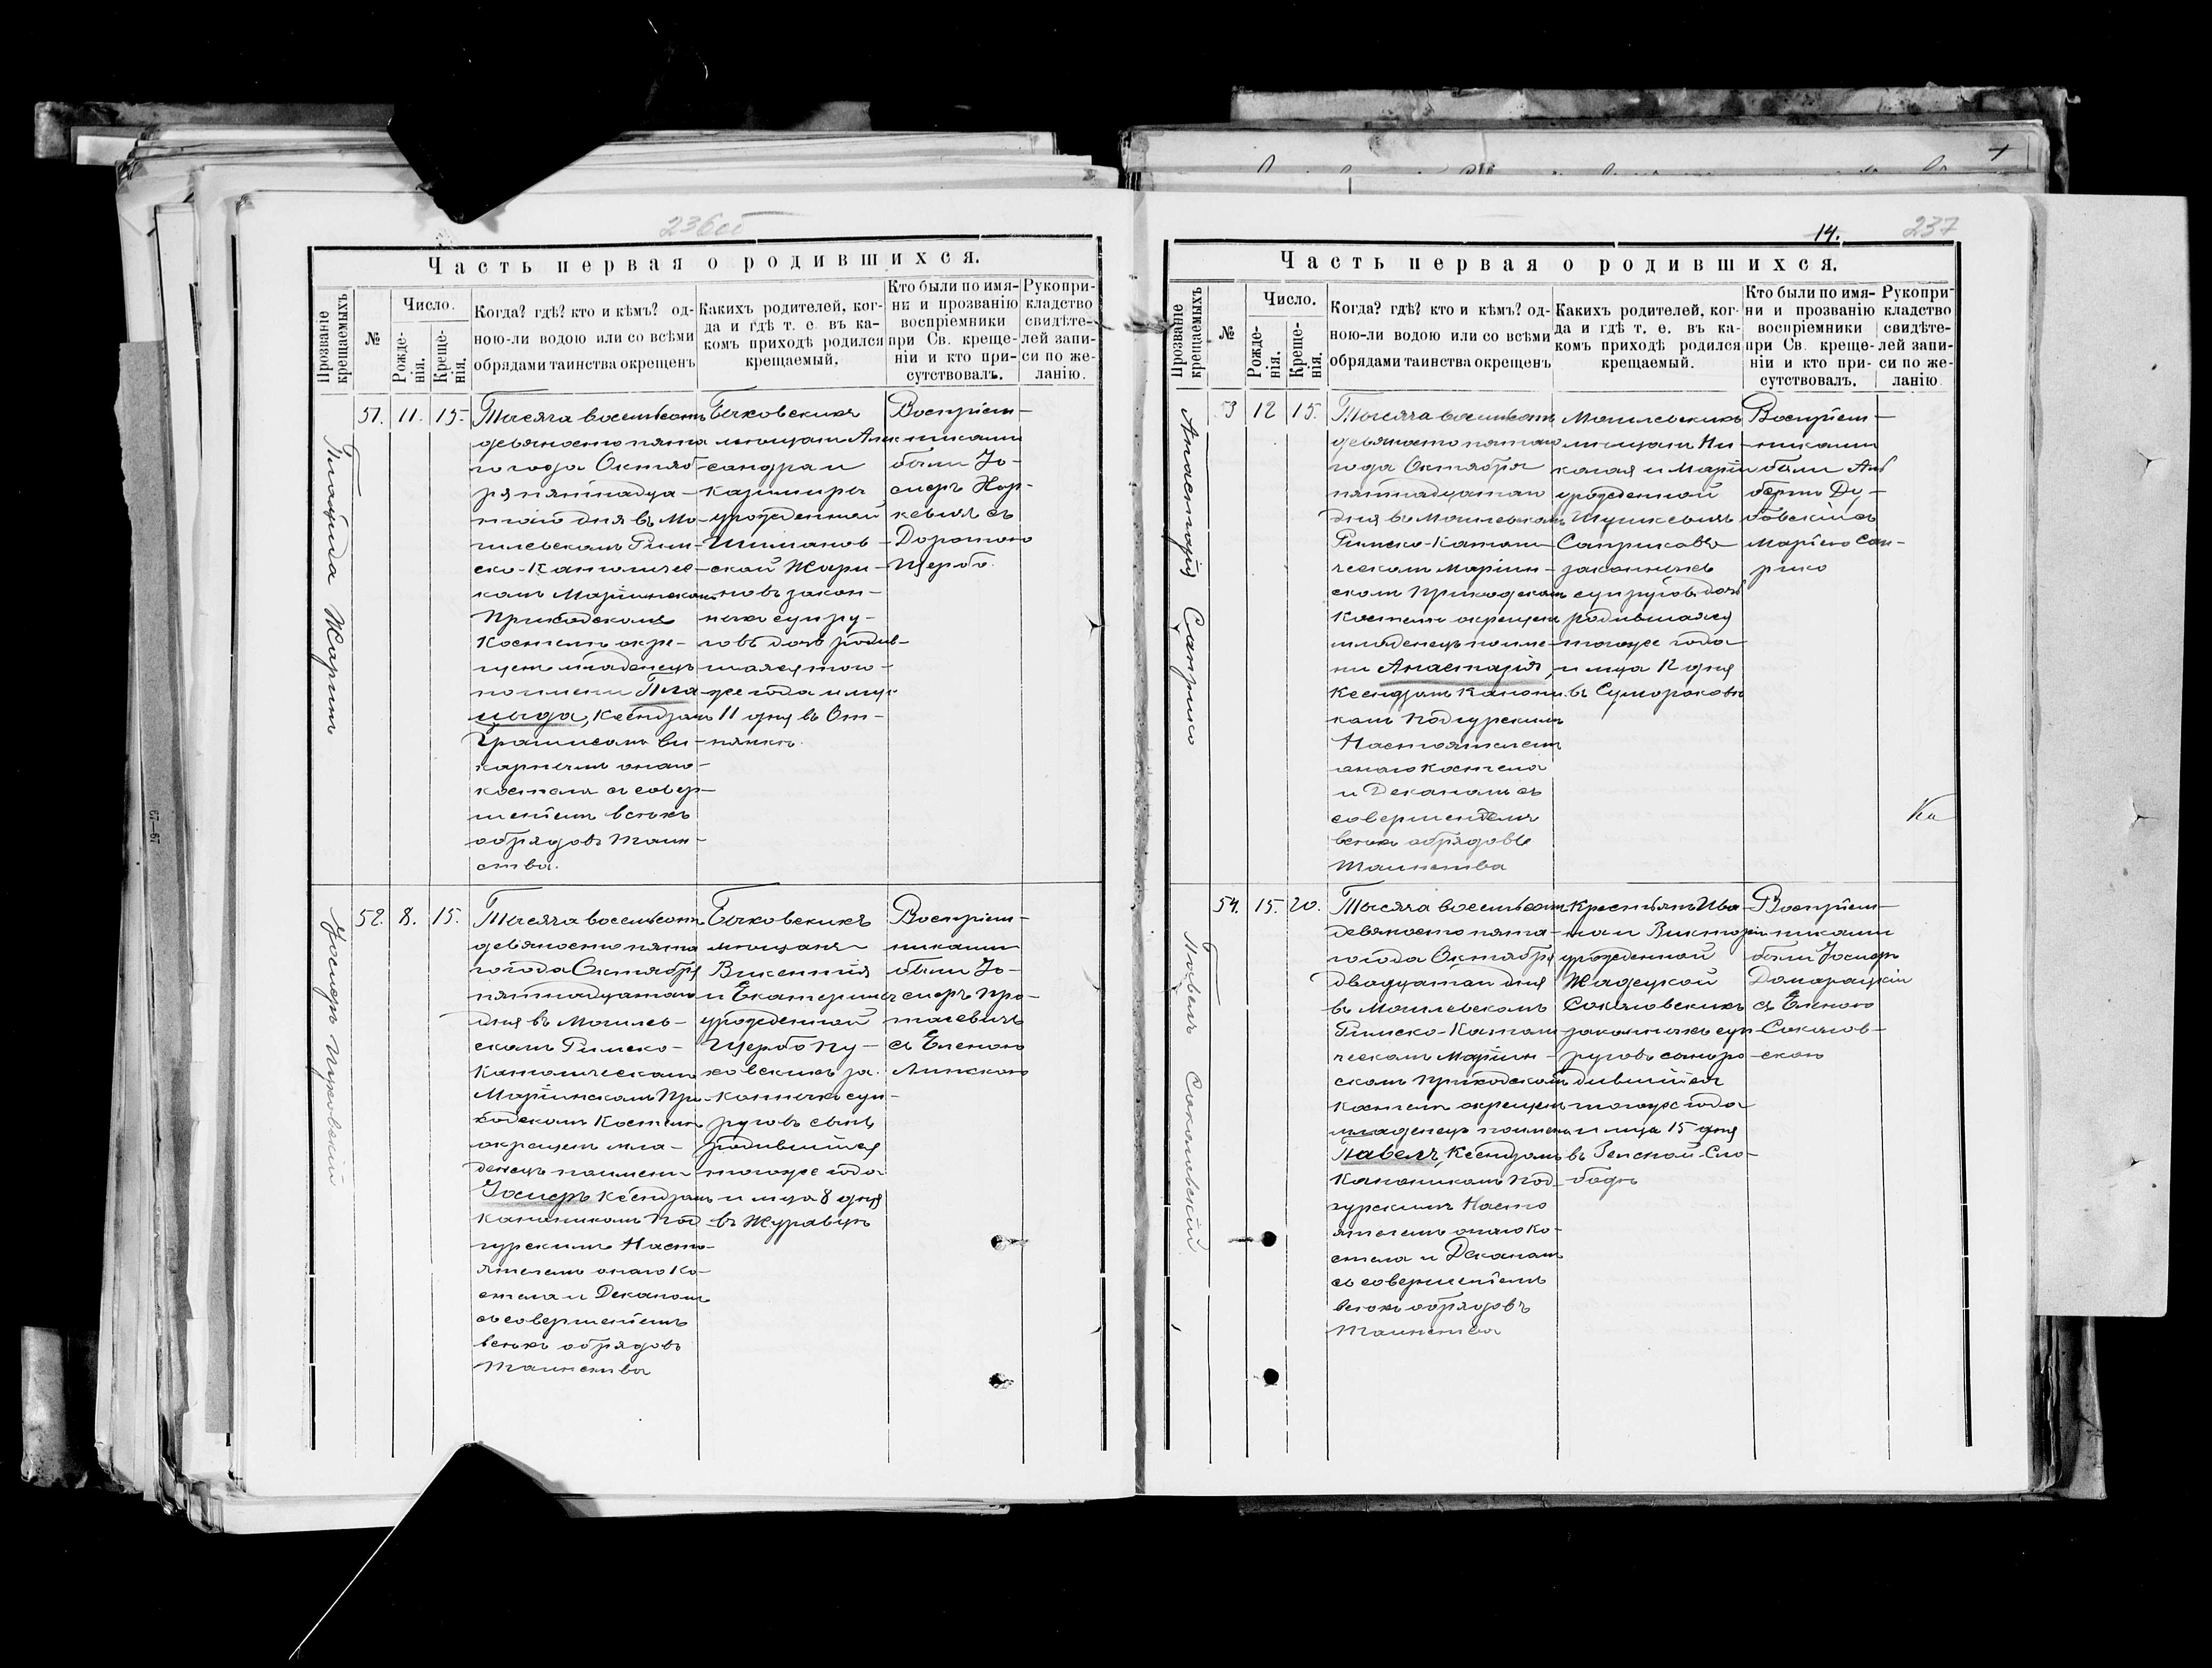 236об
Часть первая о родившихся.
Прозваніе крещаемыхъ
№
Число.
Рожде-
нія.
Креще-
нія.
Когда? гдѣ? кто и кѣмъ? од-
ною-ли водою или со всѣми
обрядами таинства окрещенъ
Какихъ родителей, ког-
да и гдѣ т. е. въ ка-
комъ приходѣ родился
крещаемый.
Кто были по имя-
ни и прозванію
воспріемники
при Св. креще-
ніи и кто при-
сутствовалъ.
Рукопри-
кладство
свидѣте-
лей запи-
си по же-
ланію.
Плацыда Жарин
51. 11. 15.
Тысяча восемьсотъ
девяносто пята
го года Октяб
ря пятнадца-
таго дня въ Мо-
гилевскомъ Рим-
ско-Католичес-
комъ Маріинскомъ
Приходскомъ
Костелѣ окре-
щенъ младенецъ
по имени Пла-
цыда, Ксендзомъ
ви-
карнымъ онаго
костела съ совер-
шеніемъ всѣхъ
обрядовъ Таин-
ства.
Быховскихъ
мѣщанъ Алек
сандра и
Казимиры
урожденной
Шиманов-
ской Жари-
новъ закон-
ныхъ супру-
говъ дочь родив-
шаяся того-
же года и мца
11 дня въ
Воспріем-
никами
были Іо-
сифъ
съ
Доротою
Щербо.
Іосифъ Пуховскій
52. 8. 15.
Тысяча восемьсотъ
девяносто пята
го года Октября
пятнадцатаго
дня въ Могилев-
скомъ Римско-
Католическомъ
Маріинскомъ При-
ходскомъ Костелѣ
окрещенъ мла-
денецъ по имени
Іосифъ Ксендзомъ
Каноникомъ Под
гурскимъ Насто-
ятелемъ онаго Ко-
стела и Деканомъ
съ совершеніемъ
всѣхъ обрядовъ
Таинства
Быховскихъ
мѣщанъ
Викентія
и Екатерины
урожденной
Щербо Пу-
ховскихъ за-
конныхъ суп-
руговъ сынъ
родившійся
того же года
и мца 8 дня
въ Журавцѣ
Воспріем-
никами
были Іо-
сифъ Про-
тасевичъ
съ Еленою
Липскою
14.
237
Часть первая о родившихся.
Прозваніе крещаемыхъ
№
Число.
Рожде-
нія.
Креще-
нія.
Когда? гдѣ? кто и кѣмъ? од-
ною-ли водою или со всѣми
обрядами таинства окрещенъ
Какихъ родителей, ког-
да и гдѣ т. е. въ ка-
комъ приходѣ родился
крещаемый.
Кто были по имя-
ни и прозванію
воспріемники
при Св. креще-
ніи и кто при-
сутствовалъ.
Рукопри-
кладство
свидѣте-
лей запи-
си по же-
ланію.
Анастазія Саприко
53 12 15.
Тысяча восемьсотъ
девяносто пятаго
года Октября
пятнадцатаго
дня въ Могилевскомъ
Римско-Католи-
ческомъ Маріин-
скомъ Приходскомъ
Костелѣ окрещенъ
младенецъ по име-
ни Анастазія,
Ксендзомъ Канони-
комъ Подгурскимъ
Настоятелемъ
онаго Костела
и Деканомъ съ
совершеніемъ
всѣхъ обрядовъ
Таинства
Могилевскихъ
мѣщанъ Ни-
колая и Маріи
урожденной
Шункевичъ
Саприковъ
законныхъ
супруговъ дочь
родившаяся
того же года
и мца 12 дня
въ Сумороковѣ
Воспріем-
никами
были Аль
бертъ Ду-
бовскій съ
Маріею Сап-
рико
Ка
Павелъ Соколовскій
54. 15. 20.
Тысяча восемьсотъ
девяносто пята-
го года Октября
двадцатаго дня
въ Могилевскомъ
Римско-Католи
ческомъ Маріин-
скомъ Приходскомъ
костелѣ окрещенъ
младенецъ по имени
Павелъ, Ксендзомъ
Каноникомъ Под-
гурскимъ Насто
ятелемъ онаго Ко-
стела и Деканомъ
съ совершеніемъ
всѣхъ обрядовъ
Таинства
Крестьянъ Ива-
на и Викторіи
урожденной
Жадецкой
Соколовскихъ
законныхъ суп-
руговъ сынъ ро-
дившійся
того же года
и мца 15 дня
въ Сло-
бодѣ
Воспріем-
никами
были Іосифъ
Домарацкій
съ Еленою
Соколов-
скою